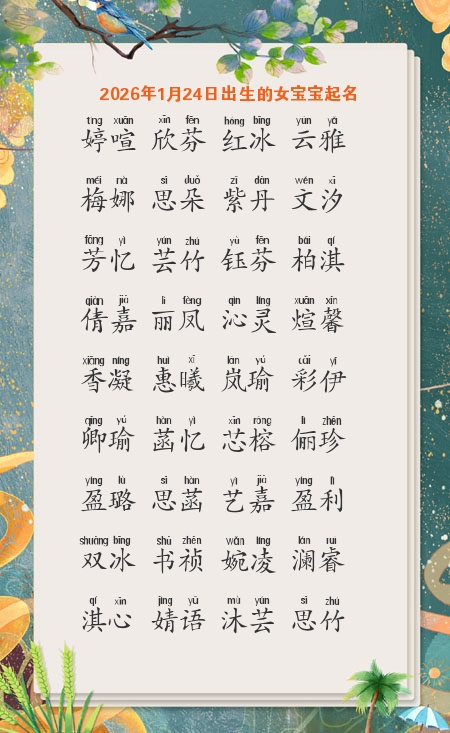 2026年1月24日出生的女宝宝起名
tíng xuān xīn fēn hóng bīng yún yǎ
婷喧 欣芬 红冰 云雅
méi nà sī duǒ zǐ dān wén xī
梅娜 思朵 紫丹 文汐
fāng yì yún zhú yù fēn bǎi qí
芳忆 芸竹 钰芬 柏淇
qiàn jiā lì fèng qìn líng xuān xīn
倩嘉 丽凤 沁灵 煊馨
xiāng níng huì xī lán yú cǎi yī
香凝 惠曦 岚瑜 彩伊
qīng yú hàn yì xīn róng lì zhēn
卿瑜 菡忆 芯榕 俪珍
yíng lù sī hàn yì jiā yíng lì
盈璐 思菡 艺嘉 盈利
shuāng bīng shū zhēn wǎn líng lán ruì
双冰 书祯 婉凌 澜睿
qí xīn jìng yǔ mù yún sī zhú
淇心 婧语 沐芸 思竹